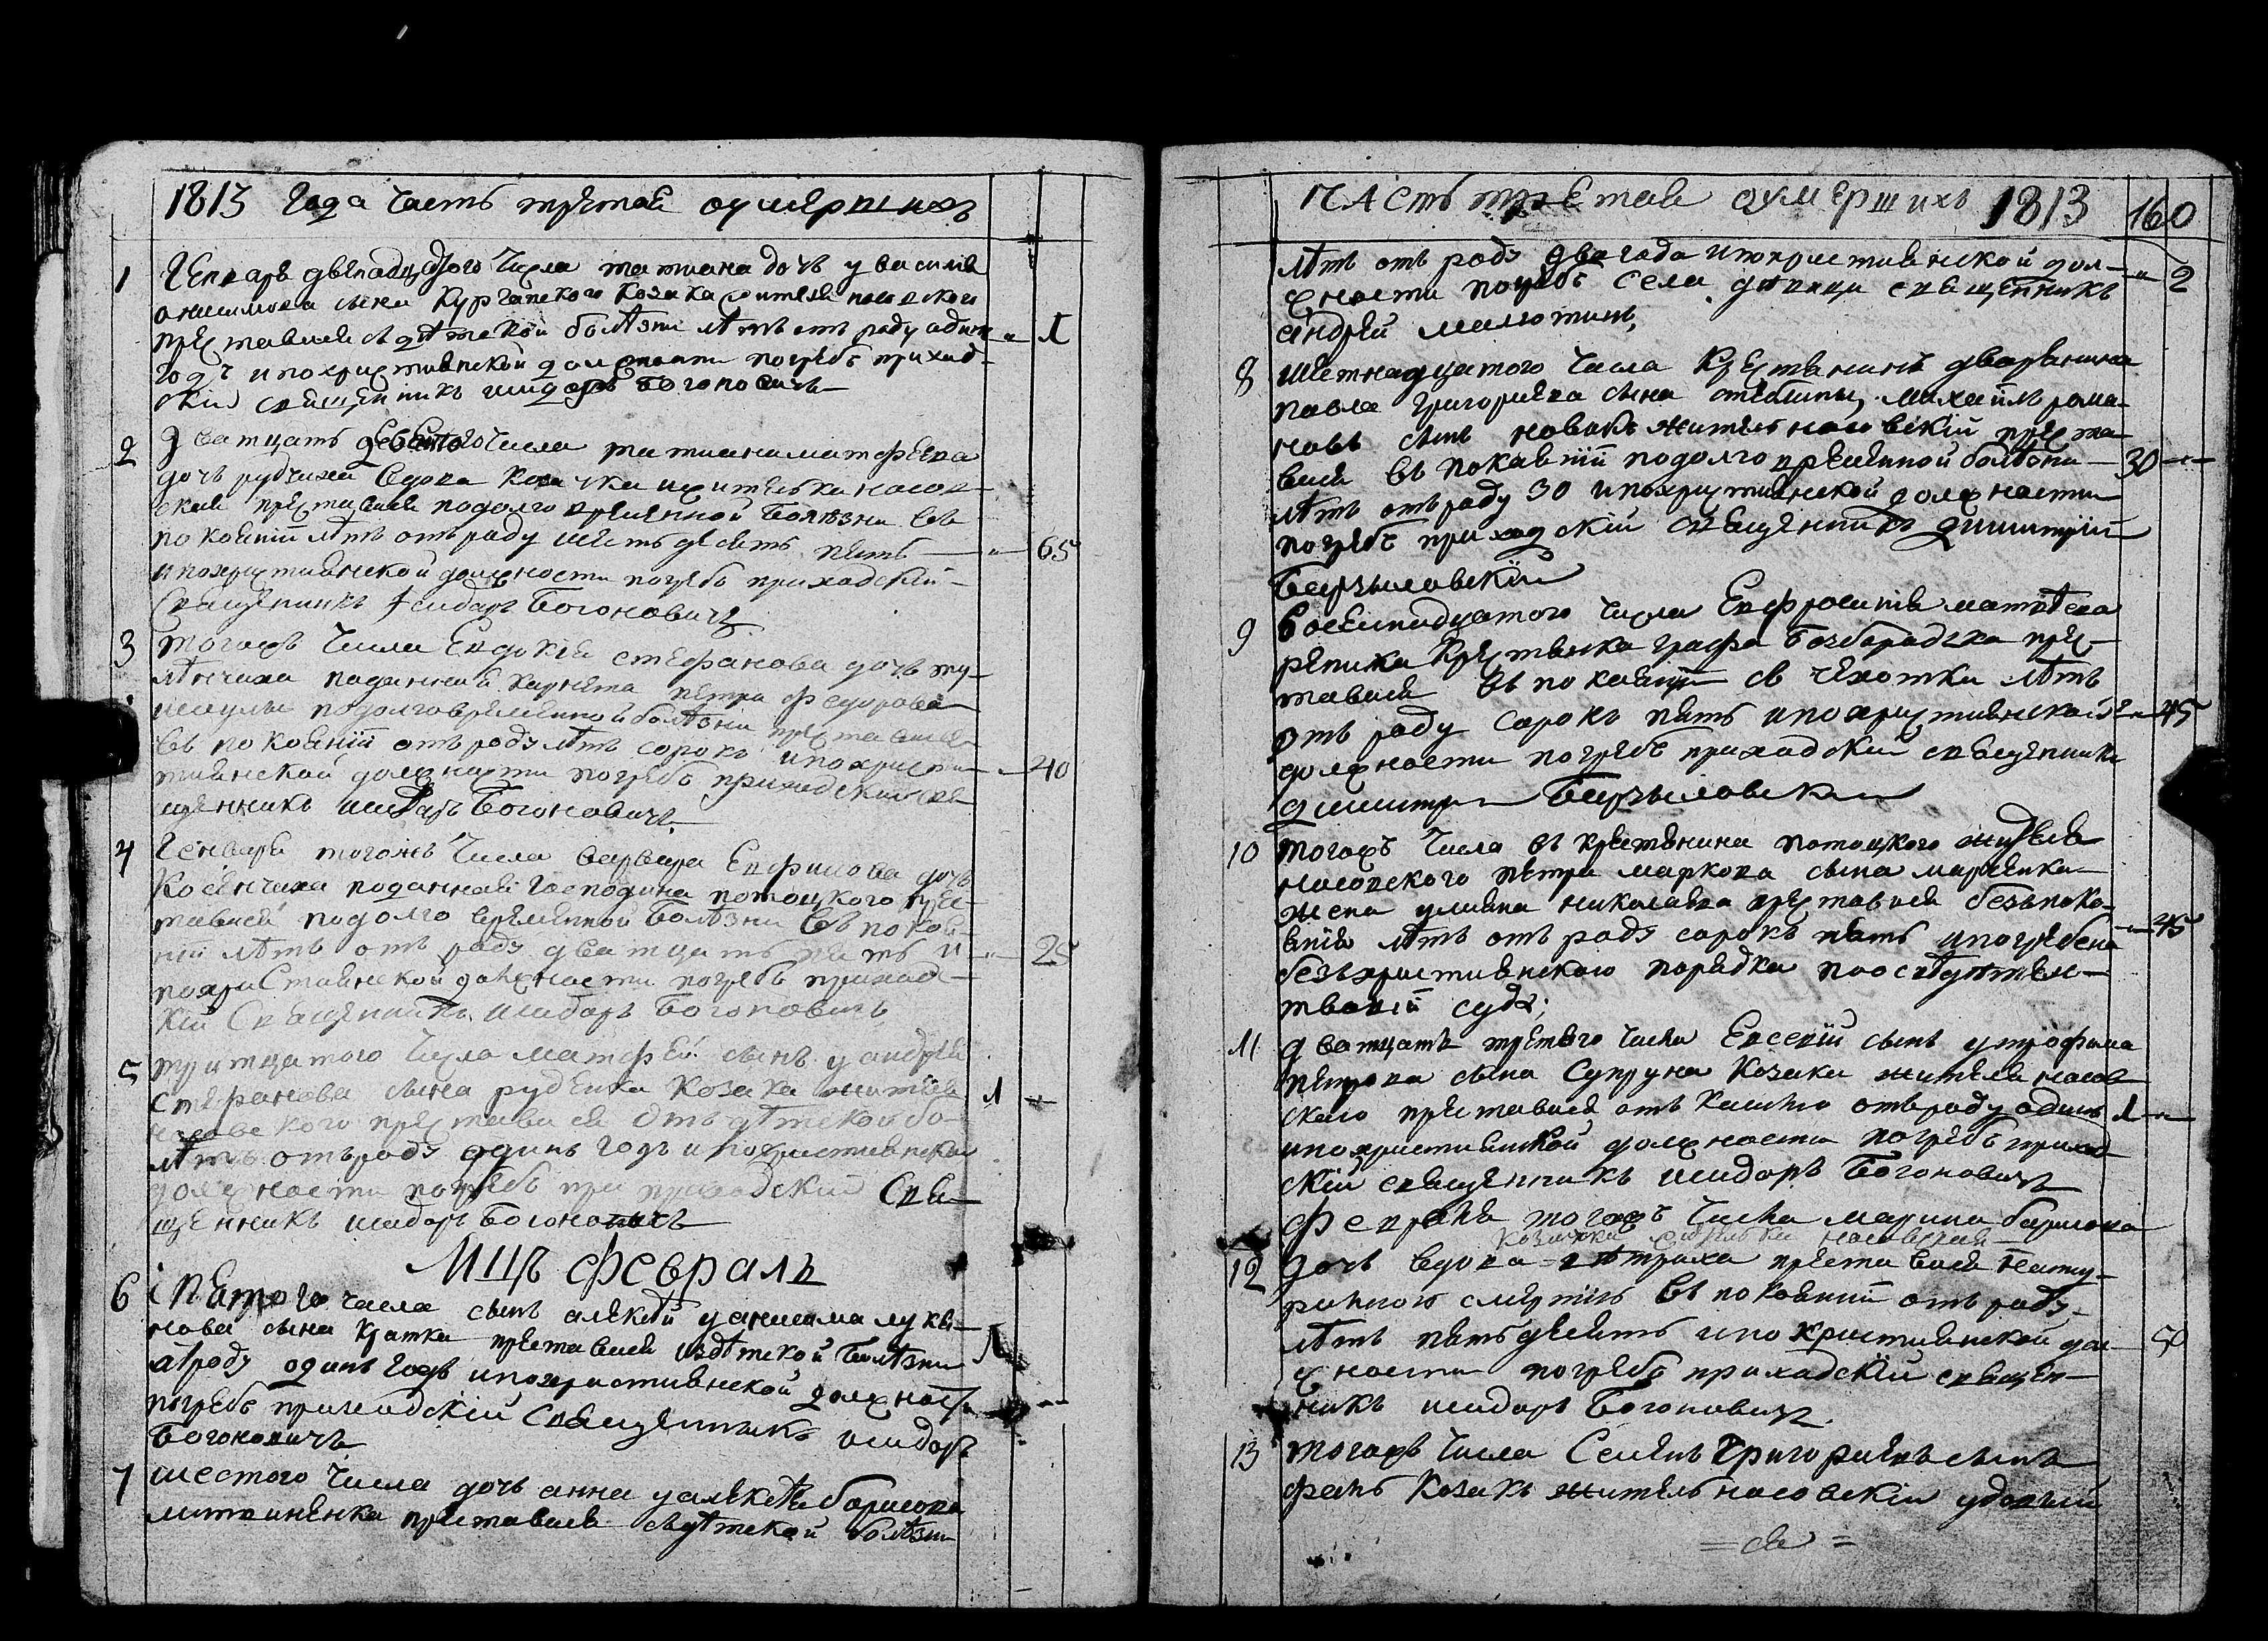 1813 Года часть третая оумершихъ
1 Генваря двенадцадтого числа татиана дочь у василия
онисимова сына Курганского Козака жителя носовского
преставися съ дѣтской болѣзни лѣтъ отъ роду одинъ " 1
годъ и похристиянской должности погребъ приход-
скій священникъ исидоръ Богоновичъ
2 Дватцать девятого числа татиана матфеева
дочь рудчиха вдова козачка и жителька носов-
ская преставися подолговременной Болѣзни въ
покояніи лѣтъ отъ роду шестьдесятъ пять " 65
и похристиянской должности погребъ приходскій
Священникъ Ісидоръ Богоновичъ
3 тогожъ числа Евдокія стефанова дочь
подданная корнета петра федорова
подолговременной болѣзни преставися
въ покояніи отъ роду лѣтъ сорокъ и похристи-
тиянской должности погребъ приходскій свя " 40
щенникъ исидоръ Богоновичъ
4 Генваря тогожъ числа варвара Евфимова дочь
Косянчиха поданная господина потоцкого прес-
тавися подолго временной Болѣзни въ покоя-
ніи лѣтъ отъ роду дватцать пять и " 25
похристиянской должности погребъ приход-
кій Священникъ исидоръ Богоновичъ
5 тритцатого числа матфей сынъ у андрея
Стефанова сына руденка Козака жителя 1 "
носовского преставися отъ дѣтской бо-
лѣзнъ отъ роду одинъ годъ и похристиянской
должности погребъ при приходскій Свя-
щенникъ исидоръ Богоновичъ
Мцъ февраль
6 Пятого числа сынъ алексѣй у онисима лукья-
нова сына Кратка преставися издѣтской болѣзни 1
отроду одинъ годъ и похристиянской должности
погребъ приходскій Священникъ исидоръ "
Богоновичъ
7 шестого числа дочь анна у алексѣя борисова
литвиненка преставися съдѣтской болѣзни
ЧАСть трЕтая оумершихъ 1813 160
лѣтъ отъ роду два года и похристиянской дол- " 2
жности погребъ села священникъ
андрей малютинъ,
8 шестнадцатого числа Крестянинъ дворянина
павла григориева сына михаилъ рома-
новъ сынъ новакъ житель носовскій преста-
вися въ покаяніи подолго временной болѣзни 30 "
лѣтъ отъ роду 30 и похристиянской должности
погребъ приходскій священникъ димитрій
Барзыловскій
9 Восемнадцатого числа Евфросинія матвѣева
репиха Крестянка графа Безбородька прес-
тавися въ покаяніи съ чахотки лѣтъ
отъ роду сорокъ пять и похристиянской " 45
должности погребъ приходскій священникъ
димитрій Барзыловскій
10 тогожъ числа въ крестянина потоцкого жителя
носовского петра маркова сына марченка
жена улияна николаева преставися безъпока-
янія лѣтъ отъ роду сорокъ пять и погребена " 45
безъ християнского порядка поосвѣдѣтель-
тваніи суда;
11 дватцать третього числа Евсевій сынъ у трофима
петрова сына Супруна Козака жителя носов
ского преставися отъ кашлю отъ роду одинъ 1 "
и похристиянской должности погребъ приход
скій священникъ исидоръ Богоновичъ
Февраля тогожъ числа марина борисова
козачка жителька носовская
12 дочь вдова преставися нату-
ралною смертію въ покояніи отъ роду
лѣтъ пятьдесятъ и похристиянской дол- 50
жности погребъ приходскій священ-
никъ исидоръ Богоновичъ
13 тогожъ числа Семенъ Григориевъ сынъ
козакъ житель носовскій удовый